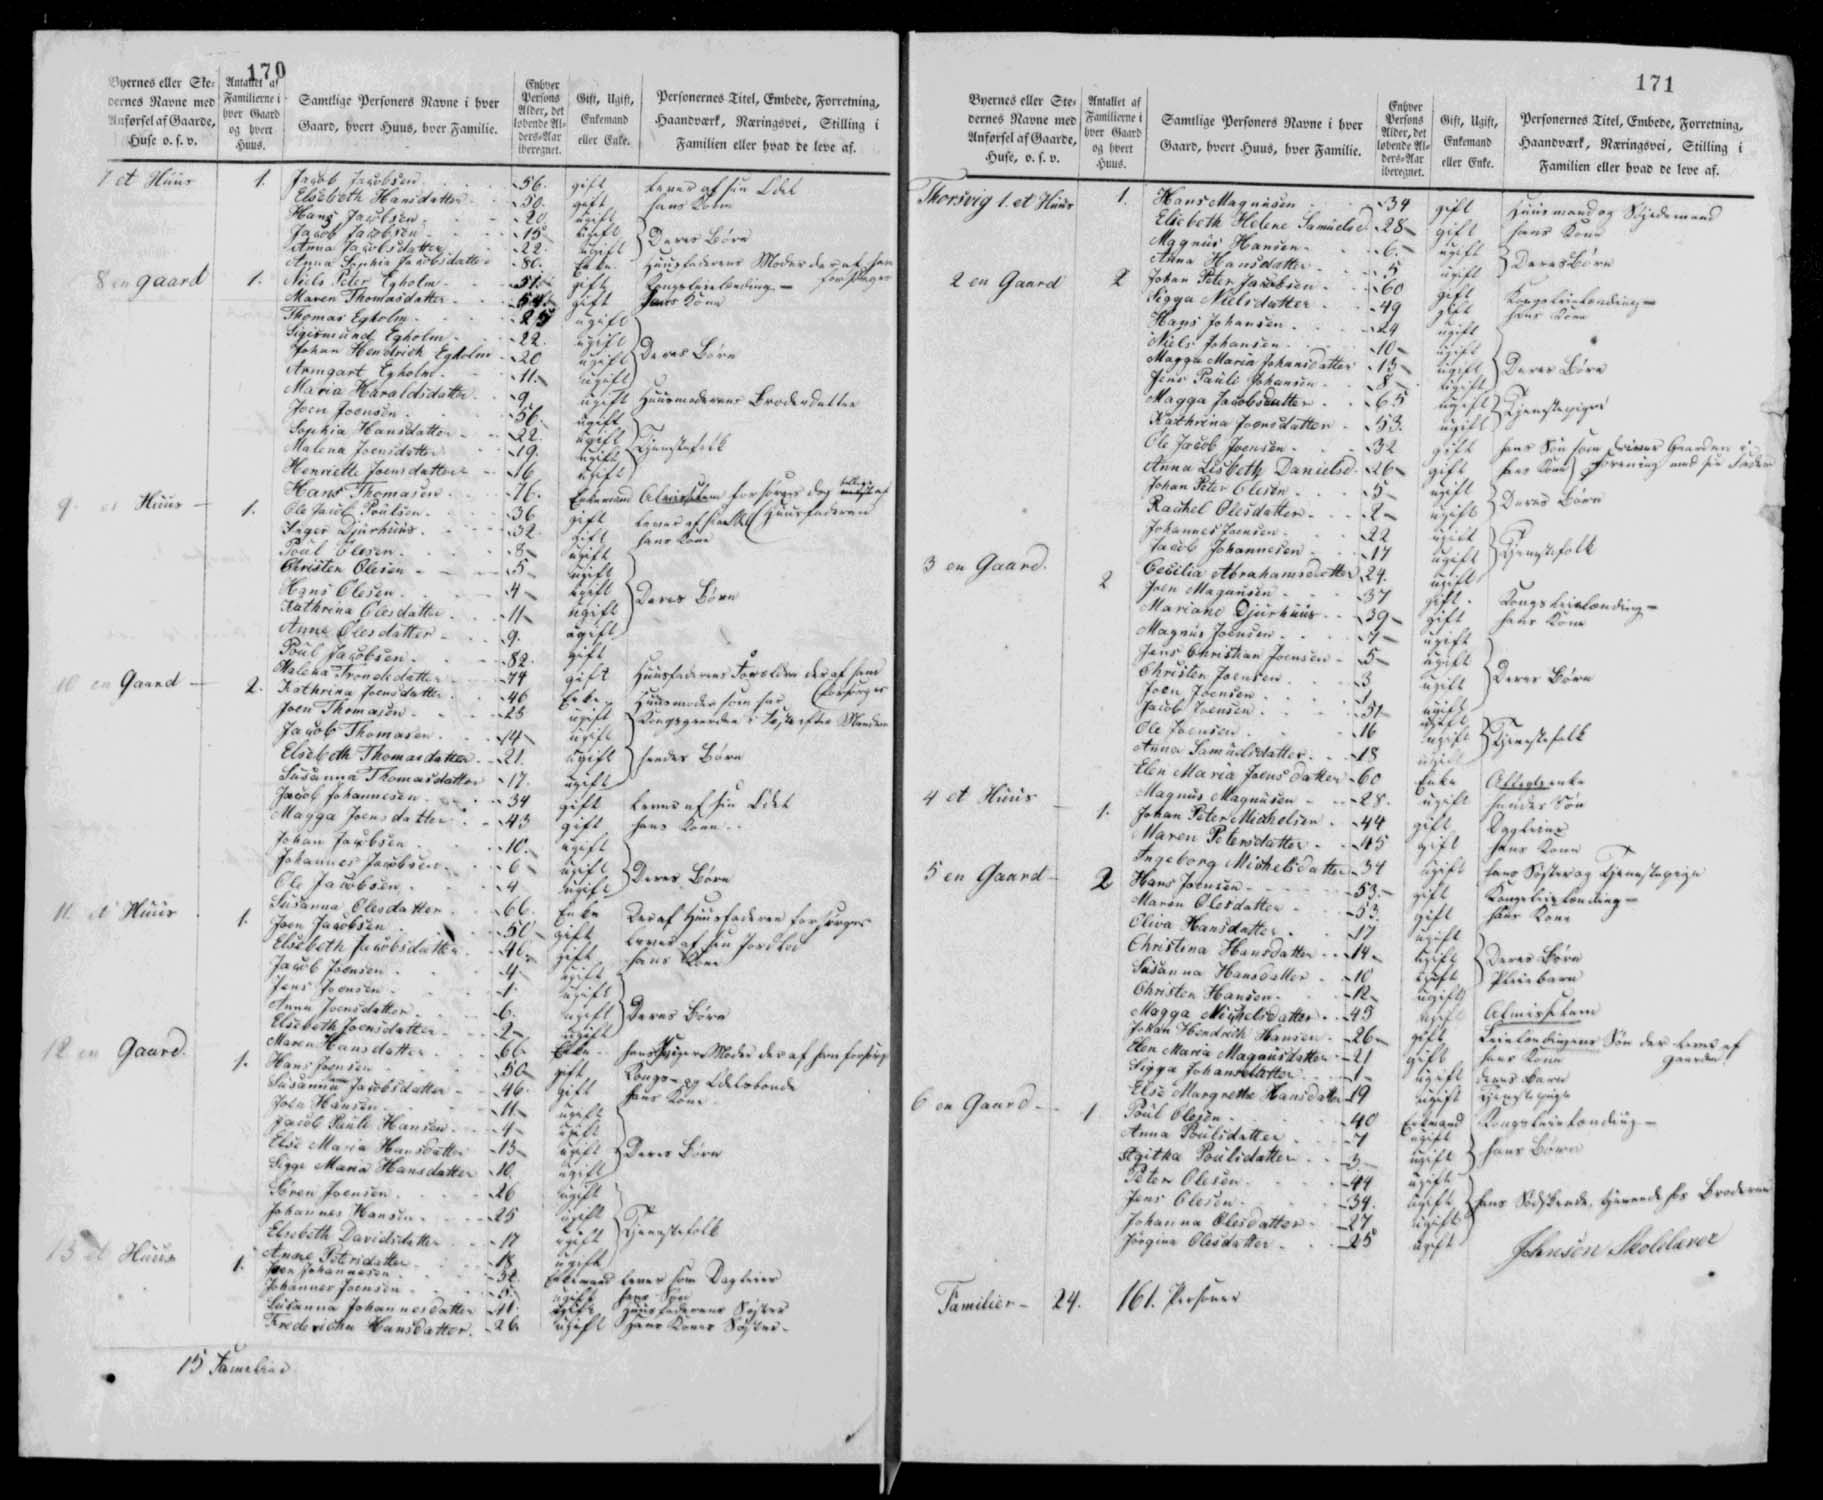 170
Byernes eller Ste-
dernes Navne med
Anførsel af Gaarde,
Huse o. s. v.
Antallet af
Familierne i
hver Gaard
og hvert
Huus.
Samtlige Personers Navne i hver
Gaard, hvert Huus, hver Familie.
Enhver
Persons
Alder, det
løbende Al-
ders-Aar
iberegnet.
Gift, Ugift,
Enkemand
eller Enke.
Personernes Titel, Embede, Forretning,
Haandværk, Næringsvei, Stilling i
Familien eller hvad de leve af.
7 et Huus 1. Jacob Jacobsen 56. gift Lever af sin Odel
Elsebeth Hansdatter 50. gift hans Kone
Hans Jacobsen 20 ugift
Jacob Jacobsen 15 ugift Deres Børn
Anna Jacobsdatter 22. ugift
Anna Sophia Jacobsdatter 80. Enke Huusfaderens Moder der af ham forsørges
8 en gaard 1. Niels Peter Egholm 51. gift Kongsleielending
Maren Thomasdatter 54 gift hans Kone
Thomas Egholm 25 ugift
Sigismund Egholm 22. ugift
Johan Hendrich Egholm 20 ugift Deres Børn
Armgart Egholm 11. ugift
Maria Haraldsdatter 9 ugift Huusmoderens Broderdatter
Joen Joensen 56. ugift
Sophia Hansdatter 22. ugift
Malena Joensdatter 19. ugift Tjenestefolk
Henriette Joensdatter 16 ugift
Hans Thomasen 76. Enkemand Almisselem forsørges dog af Huusfaderen
9. et Huus 1. Ole Jacob Poulsen 36 gift Lever af sin Odel
Inger Djurhuus 32. gift hans Kone
Poul Olesen 8 ugift
Christen Olesen 5 ugift
Hans Olesen 4 ugift Deres Børn
Kathrina Olesdatter 11 ugift
Anne Olesdatter 9. ugift
Poul Jacobsen 82. gift
Malena Trondedatter 74 gift Huusfaderens Forældre der af ham forsørges
10 en Gaard 2. Kathrina Joensdatter 46 Enke Huusmoder som har
Joen Thomasen 23 ugift Kongsgaarden i Fæste efter Manden
Jacob Thomasen 14 ugift
Elsebeth Thomasdatter 21. ugift hendes Børn
Susanna Thomasdatter 17. ugift
Jacob Johannesen 34 gift Lever af sin Odel
Magga Joensdatter 43 gift hans Kone
Johan Jacobsen 10. ugift
Johannes Jacobsen 6 ugift Deres Børn
Ole Jacobsen 4 ugift
Susanna Olesdatter 66. Enke Der af Huusfaderen forsørges
11 et Huus 1. Joen Jacobsen 50 gift Lever af sin Jordlod
Elsebeth Jacobsdatter 40 gift hans Kone
Jacob Joensen 4. ugift
Jens Joensen 1. ugift
Anna Joensdatter 6. ugift Deres Børn
Elsebeth Joensdatter 2 ugift
Maren Hansdatter 66. Enke
12 en Gaard. 1. Hans Joensen 50 gift Kongs- og Odelsbonde
Susanna Jacobsdatter 46. gift hans Kone
Joen Hansen 11 ugift
Jacob Pauli Hansen 4 ugift
Else Maria Hansdatter 13 ugift Deres Børn
Sigge Maria Hansdatter 10. ugift
Søren Joensen 26 ugift
Johannes Hansen 25 ugift
Elsebeth Davidsdatter 17 ugift Tjenestefolk
Anne Petersdatter 18 ugift
13 et Huus 1. Joen Johannesen 52. Enkemand Lever som Dagleier
Johannes Joensen 5 ugift hans Søn
Susanna Johannesdatter ugift Huusfaderens Søster
Frederichu Hansdatter 26 ugift Hans Kones Søster
15 Familier
171
Byernes eller Ste-
dernes Navne med
Anførsel af Gaarde,
Huse, o. s. v.
Antallet af
Familierne i
hver Gaard
og hvert
Huus.
Samtlige Personers Navne i hver
Gaard, hvert Huus, hver Familie.
Enhver
Persons
Alder, det
løbende Al-
ders-Aar
iberegnet.
Gift, Ugift,
Enkemand
eller Enke.
Personernes Titel, Embede, Forretning,
Haandværk, Næringsvei, Stilling i
Familien eller hvad de leve af.
Thorsvig 1. et Huus 1. Hans Magnusen 34 gift Huusmand og
Elsebeth Helene Samuelsd. 28 gift hans Kone
Magnus Hansen 6 ugift
Anna Hansdatter 5 ugift Deres Børn
2 en Gaard 2 Johan Peter Jacobsen 60 gift Kongsleielending
Sigga Nielsdatter 49 gift hans Kone
Hans Johansen 24 ugift
Niels Johansen 10 ugift
Magga Maria Johansdatter 13 ugift Deres Børn
Jens Pauli Johansen 8 ugift
Magga Jacobsdatter 65 ugift Tjenestepiger
Kathrina Joensdatter 53. ugift
Ole Jacob Joensen 32 gift hans Søn som driver Gaarden i
Anna Lisbeth Danielsd. 26 gift hans Kone forening med sin Fader
Johan Peter Olesen 5 ugift
Rachel Olesdatter 2 ugift Deres Børn
Johannes Joensen 22 ugift
Jacob Johannesen 17 ugift Tjenestefolk
3 en Gaard. 2 Cecilia Abrahamsdatter 24. ugift
Joen Magnusen 37 gift Kongsleielending
Mariane Djurhuus 39 gift hans Kone
Magnus Joensen 7 ugift
Jens Christian Joensen 5 ugift
Christen Joensen 3 ugift Deres Børn
Joen Joensen 1 ugift
Jacob Joensen 31 ugift
Ole Joensen 16 ugift Tjenestefolk
Anna Samuelsdatter 18 ugift
Elen Maria Joensdatter 60 Enke Aftægtsenke
4 et Huus 1. Magnus Magnusen 28. ugift hendes Søn
Johan Peter Michelsen 44 gift Dagleier
Maren Petersdatter 45 gift hans Kone
Ingeborg Michelsdatter 34 ugift hans Søster og Tjenestepige
5 en Gaard 2 Hans Joensen 53. gift Kongsleielending
Maren Olesdatter 53 gift hans Kone
Oliva Hansdatter 17 ugift
Christina Hansdatter 14 ugift Deres Børn
Susanna Hansdatter 10 ugift
Christen Hansen 12 ugift Pleiebarn
Magga Michelsdatter 45 ugift Almisselem
Johan Hendrich Hansen 26 gift Leielendingens Søn der lever af Gaarden
Elen Maria Magnusdatter 21 gift hans Kone
Sigga Johansdatter 1 ugift deres Barn
Else Margrethe Hansdatter 19 ugift Tjenestepige
6 en Gaard 1 Poul Olesen 40 Enkemand Kongsleielending
Anna Poulsdatter 7 ugift
Agitha Poulsdatter 3 ugift hans Børn
Peter Olesen 44 ugift
Jens Olesen 34. ugift hans Sødskende, tjenende hos Broderen
Johanna Olesdatter 27 ugift
Jørgine Olesdatter 25 ugift
Johnsen Skolelærer
Familier 24. 161. Personer